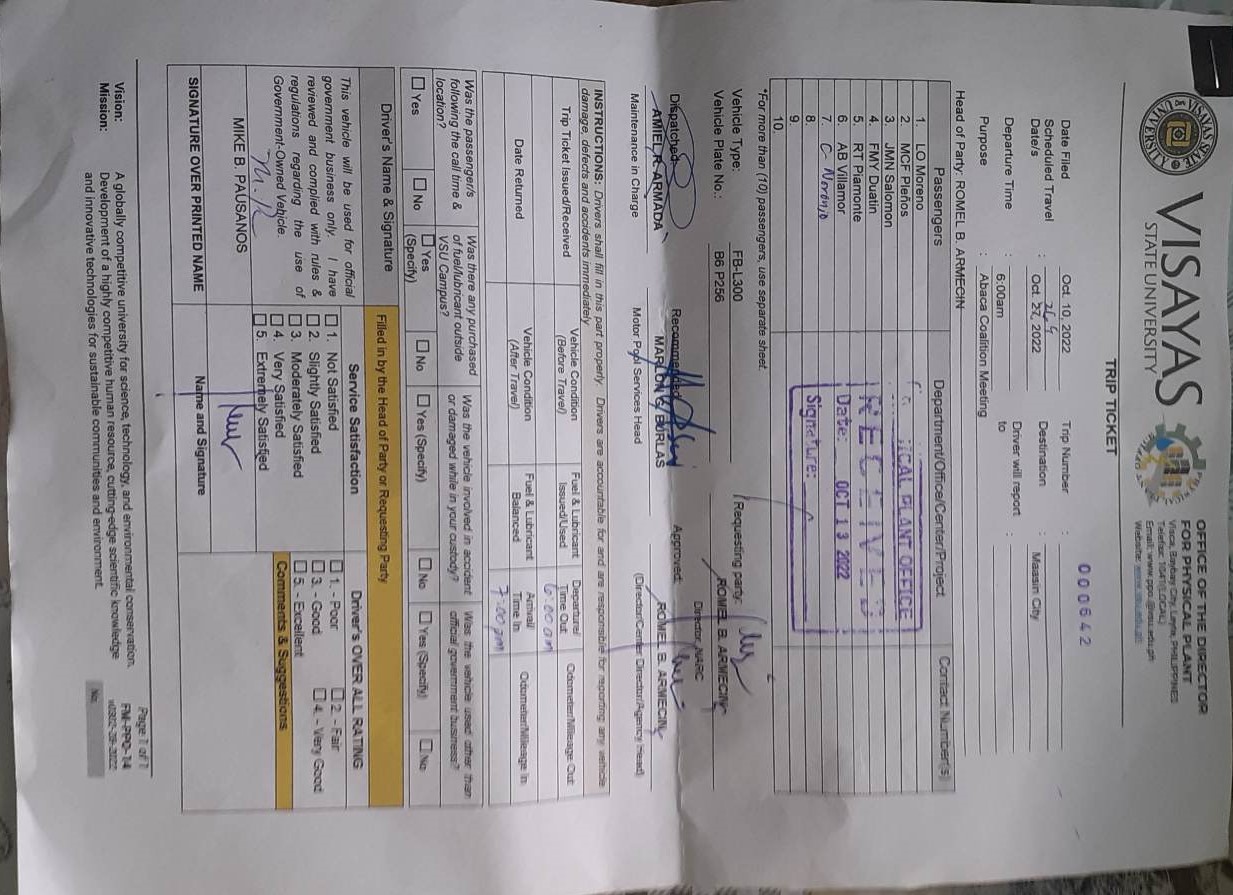 VISAYAS
STATE UNIVERSITY
OFFICE OF THE DIRECTOR
FOR PHYSICAL PLANT
Visca, Baybay City, Leyte, PHILIPPINES
Telefax: 1045 (LOCAL)
Email: www.ppo.@vsu.edu.ph
Website: www.vsu.edu.ph
000642
TRIP TICKET
Date Filed Oct 10, 2022 Trip Number :
Scheduled Travel Date/s : Oct 2022 Destination : Maasin City
Departure Time : 6:00am Driver will report to :
Purpose : Abaca Coalition Meeting
Head of Party: ROMEL B. ARMECIN
Passengers Department/Office/Center/Project Contact Number(s)
1. LO Moreno
2. MCF Pleños
3. JMN Salomon
4. FMY Duatin
5. RT Piamonte
6. AB Villamor
7. C-
8.
9.
10.
ICAL PLANT OFFICE
RECEIVED
Date: OCT 13 2022
Signature:
*For more than (10) passengers, use separate sheet.
Vehicle Type: FB-L300
Vehicle Plate No.: B6 P256
Requesting party:
ROMEL B. ARMECIN
Director, NARC
Dispatched: Recommended: Approved:
AMIEL R. ARMADA MARLON G. BURLAS ROMEL B. ARMECIN
Maintenance in Charge Motor Pool Services Head (Director/Center Director/Agency Head)
INSTRUCTIONS: Drivers shall fill in this part properly. Drivers are accountable for and are responsible for reporting any vehicle
damage, defects and accidents immediately
Trip Ticket Issued/Received Vehicle Condition (Before Travel) Fuel & Lubricant Issued/Used Departure/ Time Out Odometer/Mileage Out
6:00 am
Date Returned Vehicle Condition (After Travel) Fuel & Lubricant Balanced Arrival/ Time In Odometer/Mileage In
7:00 pm
Was the passenger/s following the call time & location? Was there any purchased of fuel/lubricant outside VSU Campus? Was the vehicle involved in accident or damaged while in your custody? Was the vehicle used other than official government business?
Yes No Yes (Specify) No Yes (Specify) No Yes (Specify) No
Driver's Name & Signature Filled in by the Head of Party or Requesting Party
This vehicle will be used for official
government business only. I have
reviewed and complied with rules &
regulations regarding the use of
Government-Owned Vehicle.
MIKE B. PAUSANOS
SIGNATURE OVER PRINTED NAME
Service Satisfaction
1. Not Satisfied
2. Slightly Satisfied
3. Moderately Satisfied
4. Very Satisfied
5. Extremely Satisfied
Name and Signature
Driver's OVER ALL RATING
1. - Poor 2. - Fair
3. - Good 4. - Very Good
5. - Excellent
Comments & Suggestions
Vision: A globally competitive university for science, technology, and environmental conservation.
Mission: Development of a highly competitive human resource, cutting-edge scientific knowledge
and innovative technologies for sustainable communities and environment.
Page 1 of 1
FM-PPO-14
No.